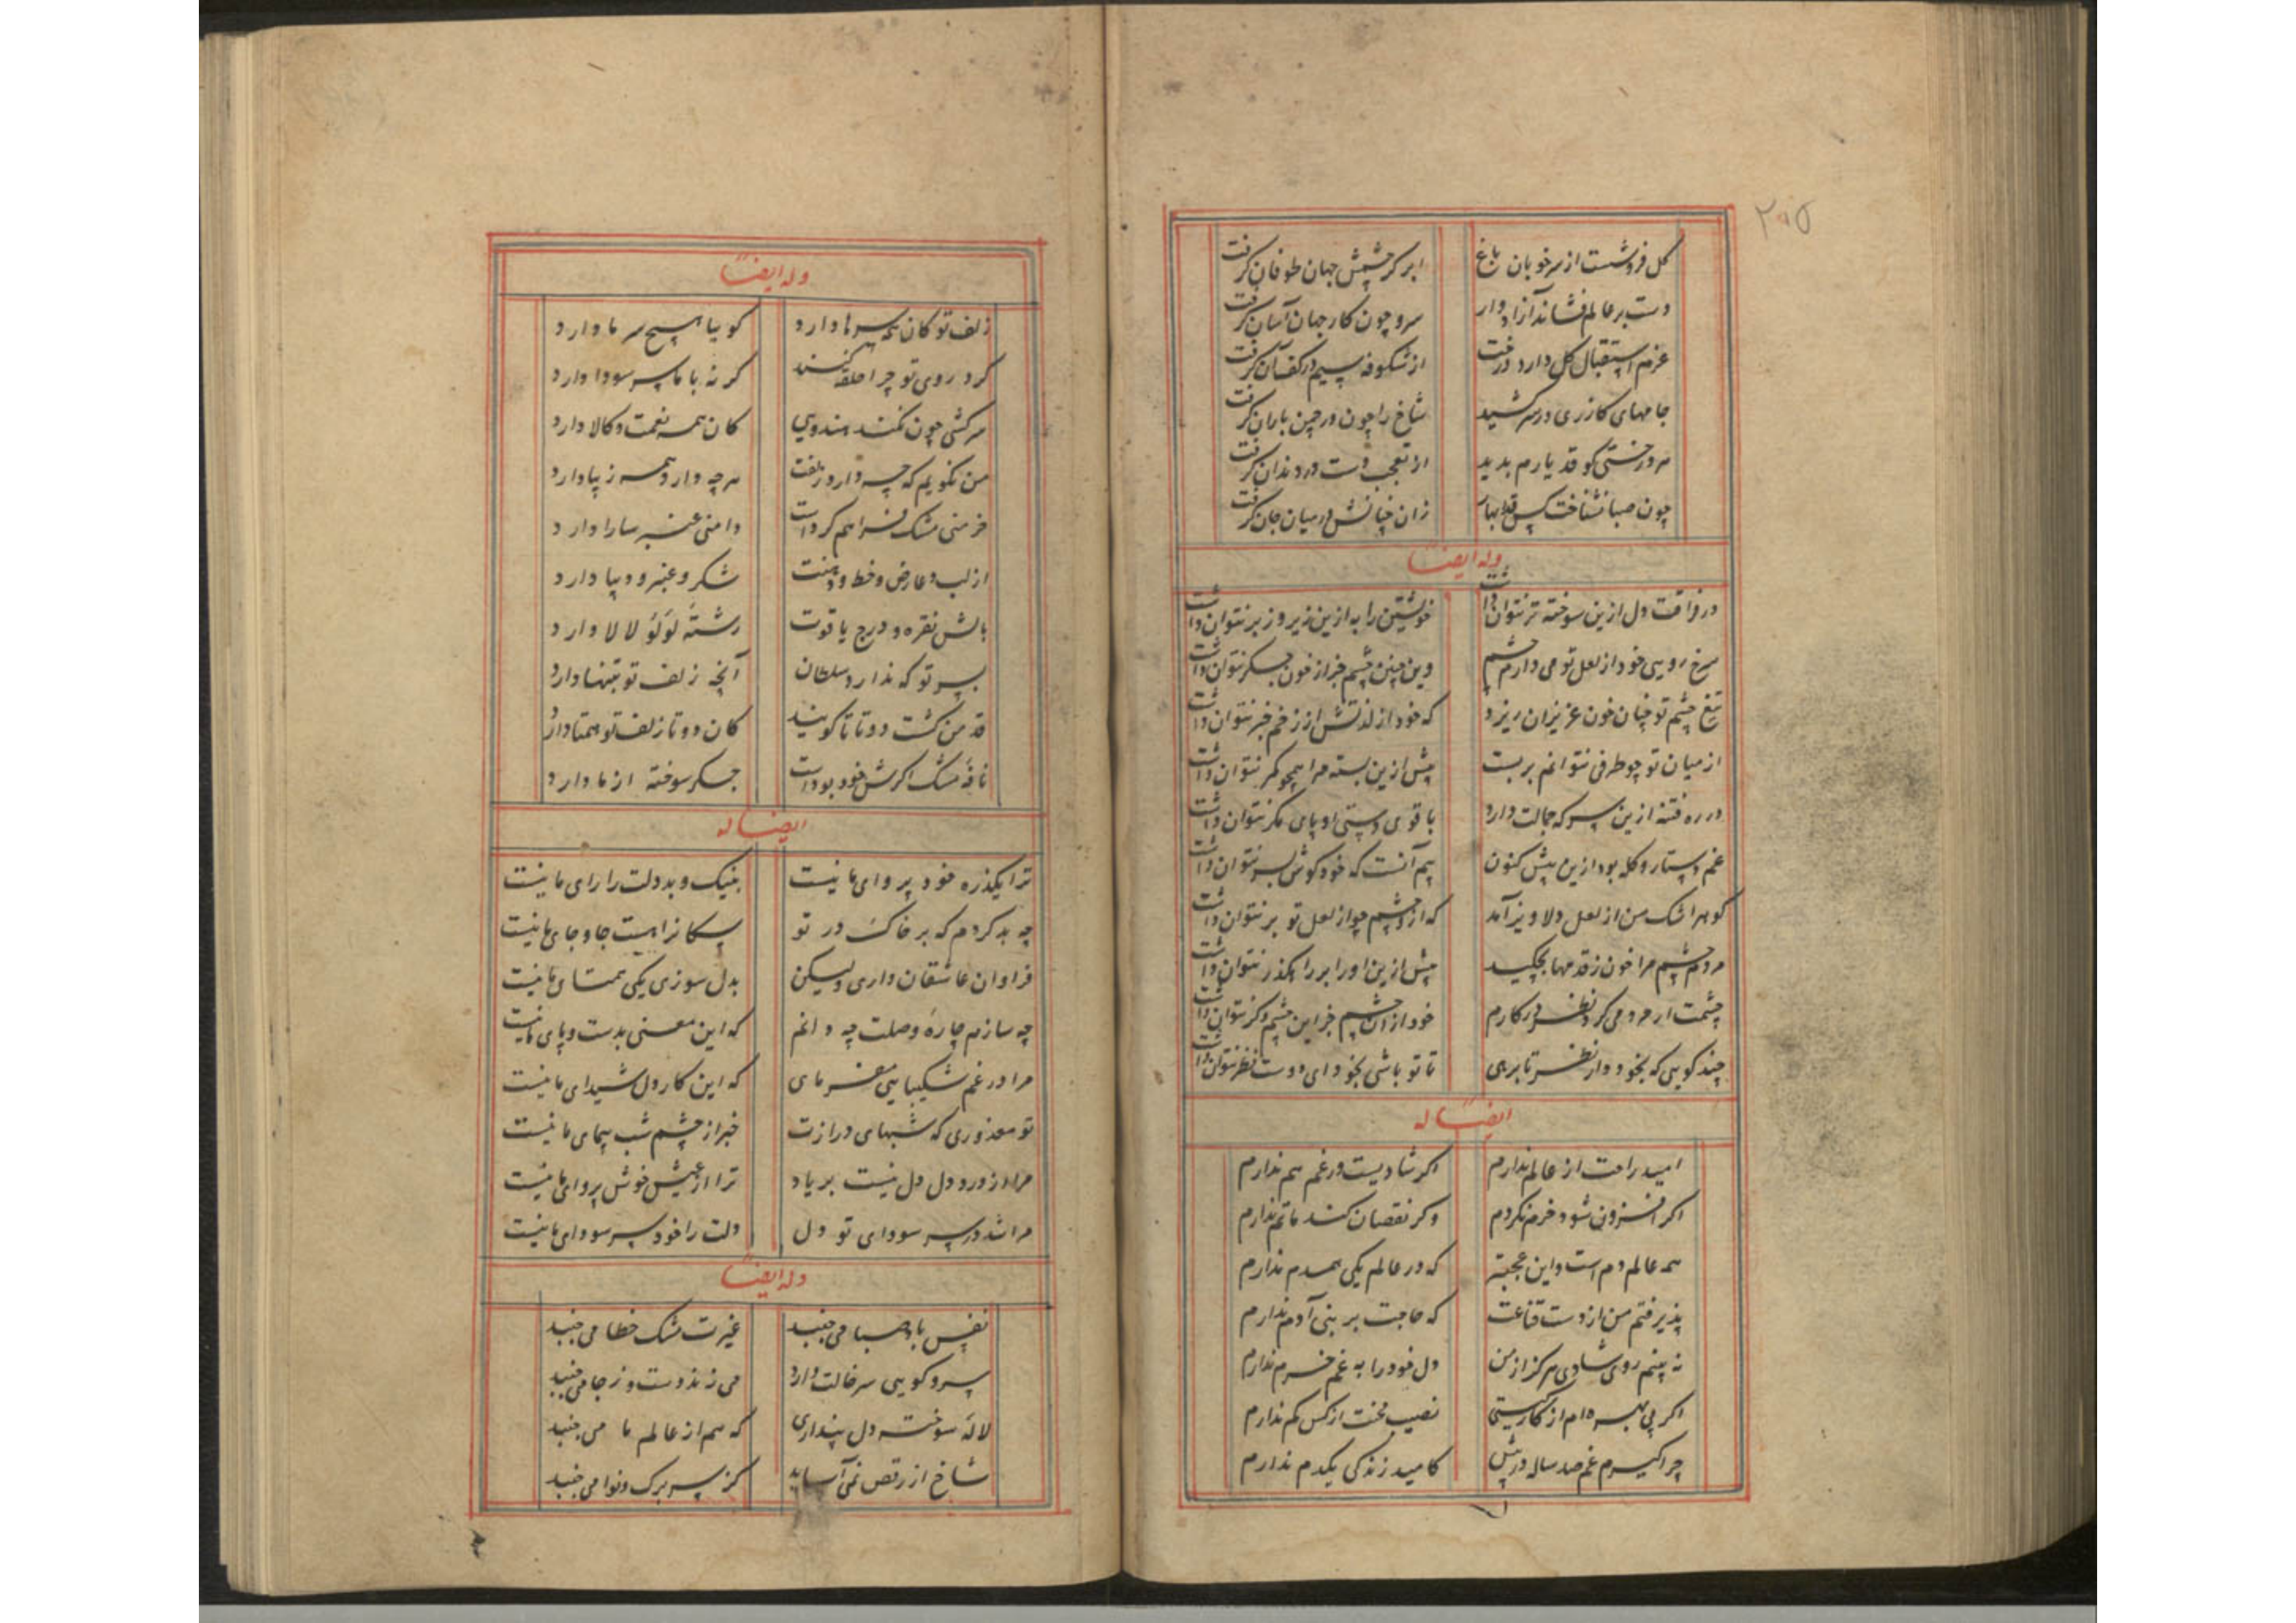 ۲۰۵
گل فروشست از سر خوبان باغ ابر کز چشمش جهان طوفان گرفت
دست بر عالم فشاند آزادوار سرو چون کار جهان آسان گرفت
عزم استقبال گل دارد درخت از شکوفه سیم در کف آن گرفت
جامهای کازری در سر کشید شاخ را چون در چمن باران گرفت
هر درختی کو قد یارم بدید از تعجب دست در دندان گرفت
چون صبا نشناخت کس قدر بهار زان چنانش در میان جان گرفت
وله ایضاً
در فراقت دل ازین سوخته تر نتوان داشت خویشتن را به ازین زیر و زبر نتوان داشت
سرخ رویی خود از لعل تو می دارم چشم وین چنین چشم جز از خون جگر نتوان داشت
تیغ چشم تو چنان خون عزیزان ریزد که خود از لذتش از زخم خبر نتوان داشت
از میان تو چو طرفی نتوانم بربست بیش ازین بسته مرا همچو کمر نتوان داشت
در ره فتنه ازین سر که جمالت دارد با قوی دستی او پای مگر نتوان داشت
غم دستار و کله بود ازین پیش کنون بیم آنست که خود گوش بسر نتوان داشت
گوهر اشک من از لعل دلاویز آمد که از چشم چو از لعل تو بر نتوان داشت
مردم چشم مرا خون ز قدمها بچکید بیش ازین او را بر راهگذر نتوان داشت
چشمت ار مردمی کرد نظر در کارم خود از ان چشم جز این چشم دگر نتوان داشت
چند گویی که بخود دار نظر تا برهی تا تو باشی بخود ای دوست نظر نتوان داشت
ایضاً له
امید راحت از عالم ندارم اگر شادیست ور غم هم ندارم
اگر افزون شود خرم نگردم وگر نقصان کند ماتم ندارم
همه عالم دم است و این عجبتر که در عالم یکی همدم ندارم
پذیرفتم من از دست قناعت که حاجت بر بنی آدم ندارم
نه بینم روی شادی هرگز از من دل خود را به غم خرم ندارم
اگر بی بهره ام از کار گیتی نصیب محنت از کس کم ندارم
چرا گیرم غم صد ساله در پیش کامید زندگی یکدم ندارم
وله ایضاً
زلف تو کان همه سرها دارد گوییا هیچ سر ما دارد
گرد روی تو چرا حلقه کند گر نه با ما سر سودا دارد
سرکشی چون نکند هندویی کان همه نعمت و کالا دارد
من نگویم که چه دارد زلفت هر چه دارد همه زیبا دارد
خرمنی مشک فراهم کردست دامنی عنبر سارا دارد
از لب و عارض و خط و دهنت شکر و عنبر و دیبا دارد
بالش نقره و درج یاقوت رشته لؤلؤ لالا دارد
بسر تو که ندارد سلطان آنچه زلف تو بتنها دارد
قد من گشت دو تا تا گویند کان دو تا زلف تو همتا دارد
نافه مشک اگرش خود بودست جگر سوخته از ما دارد
ایضاً له
ترا یکذره خود پروای ما نیست بنیک و بد دلت را رای ما نیست
چه بد کردم که بر خاک در تو سگانرا هست جا و جای ما نیست
فراوان عاشقان داری ولیکن بدل سوزی یکی همتای ما نیست
چه سازم چاره وصلت چه دانم که این معنی بدست و پای ما نیست
مرا در غم شکیبایی مفرمای که این کار دل شیدای ما نیست
تو معذوری که شبهای درازت خبر از چشم شب پیمای ما نیست
مرا از درد دل دل نیست بر یاد ترا از عیش خوش پروای ما نیست
مرا شد در سر سودای تو دل دلت را خود سر سودای ما نیست
وله ایضاً
نفس باد صبا می جنبد غیرت مشک خطا می جنبد
سرو گویی سر خالت دارد می زند دست و ز جا می جنبد
لاله سوخته دل پنداری که هم از عالم ما می جنبد
شاخ از رقص نمی آساید کز سر برگ و نوا می جنبد